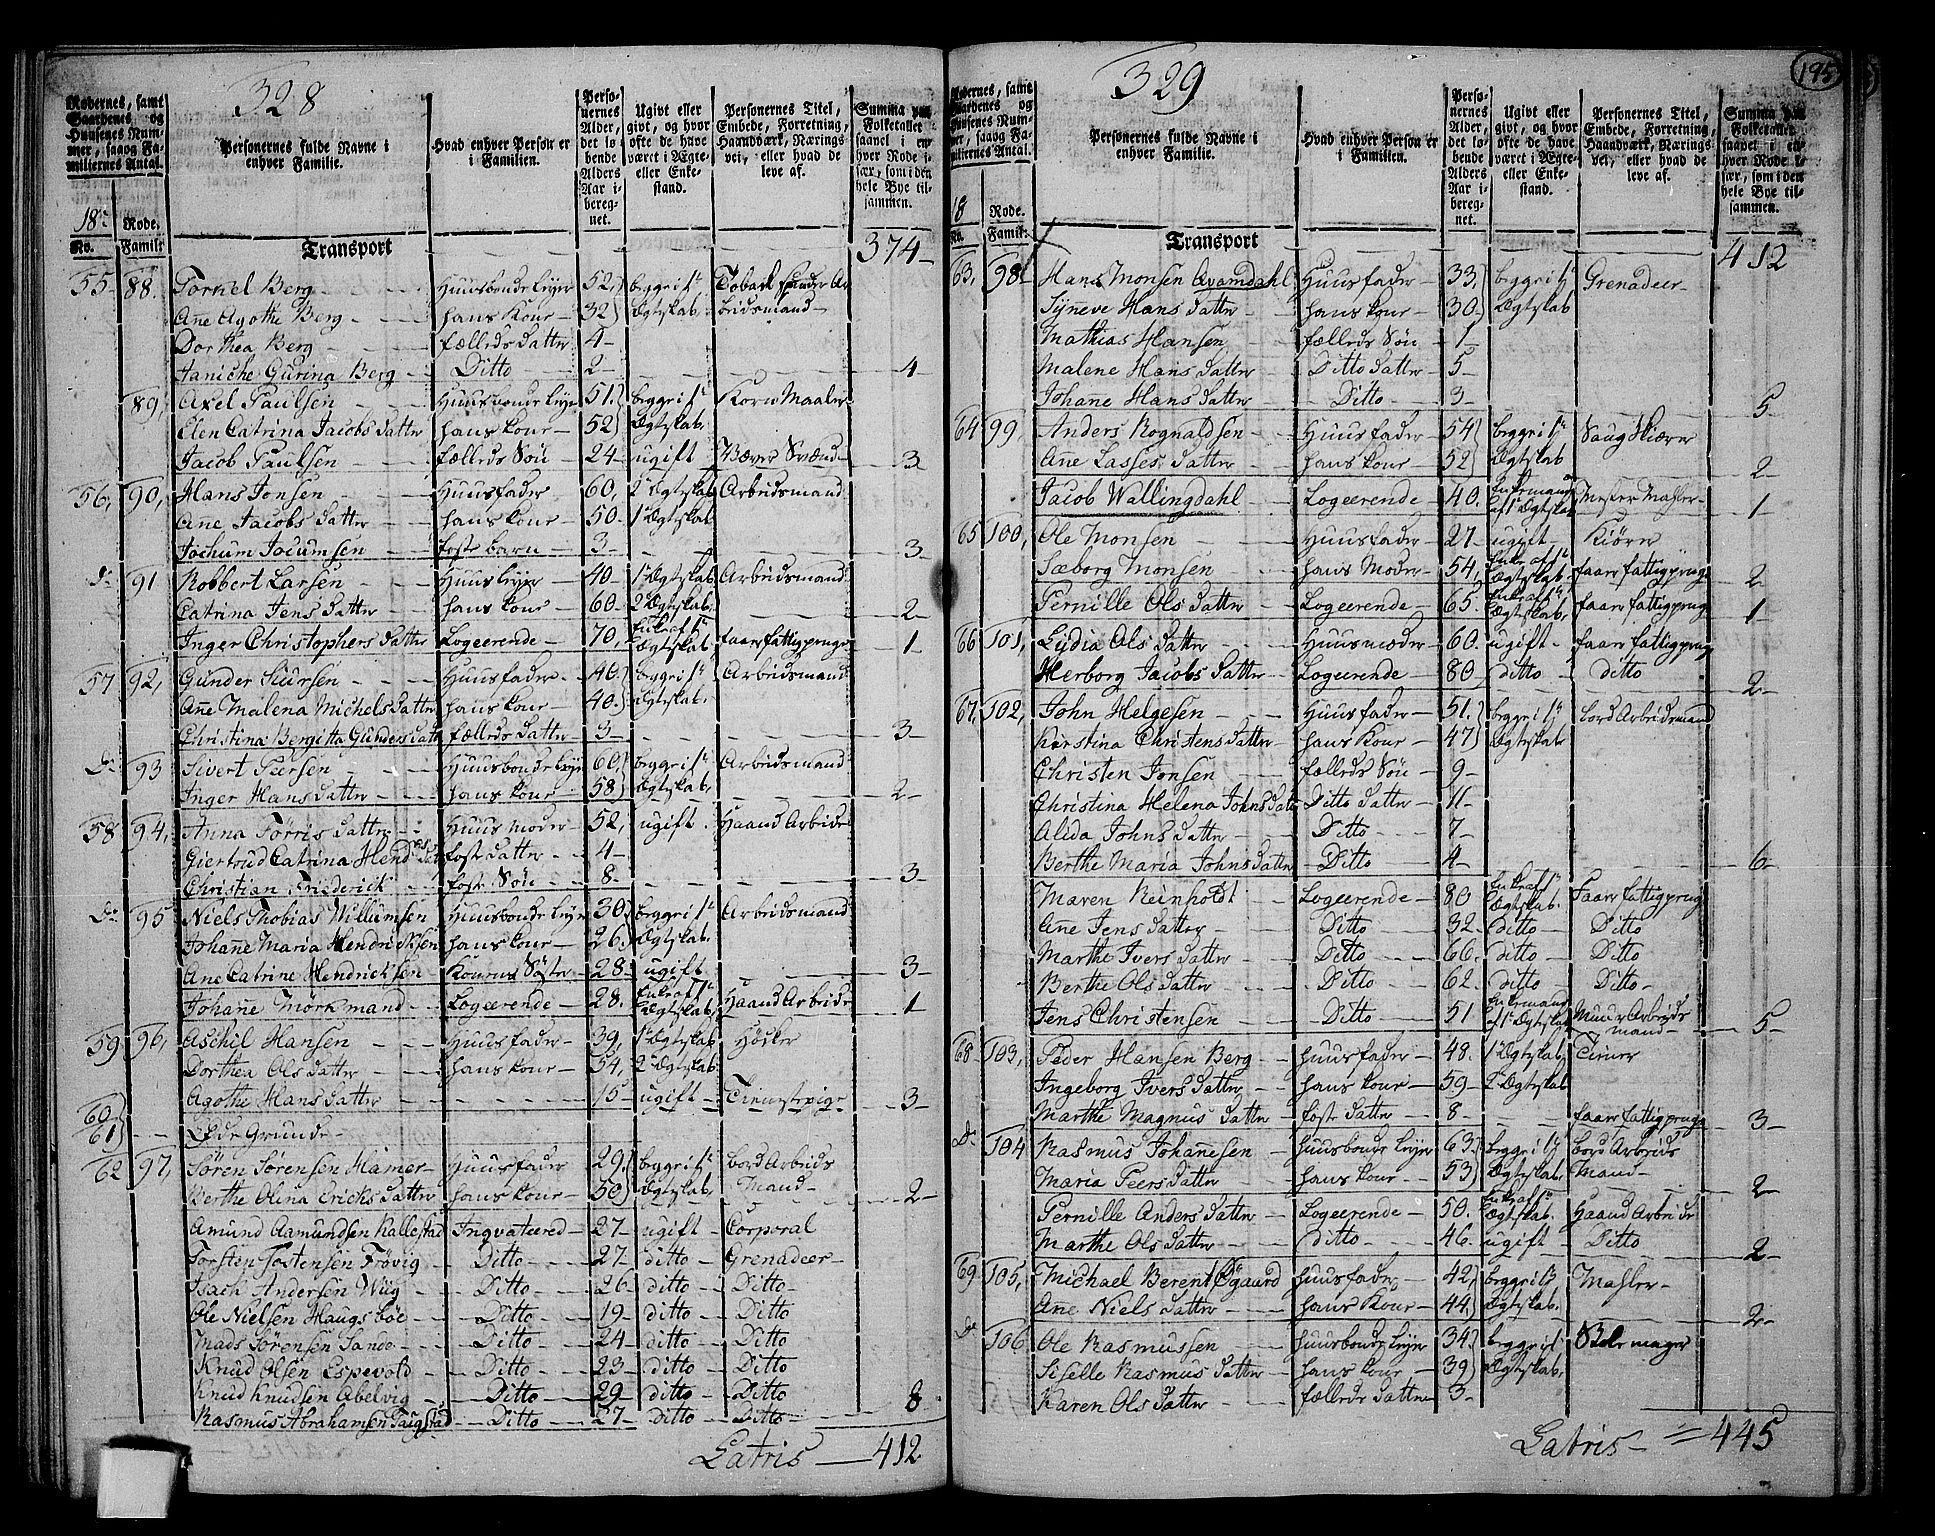 195
328
Rodernes, samt Gaardenes og Huusenes Nummer, saavog Familiernes Antal.
Personernes fulde Navne i enhver Familie.
Hvad enhver Person er i Familien.
Personernes Alder, det løbende Alders Aar iberegnet.
Ugivt eller givt, og hvor ofte de have været i Ægte- eller Enkestand.
Personernes Titel, Embede, Forretning, Haandværk, Næringsvei, eller hvad de leve af.
Summa paa Folketallet saavel i enhver Rode især, som i den hele Bye tilsammen.
18de Rode.
No. Famili:
Transport 374
55 88. Torkel Berg Huusbonde leyer 52, begge i 1te
Ane Agothe Berg hans Kone 32 Ægteskab
Dorthea Berg fælleds Datter 4
Janiche Gurina Berg Ditto 2 4
89, Axel Paulsen Huusbonde leyer 51. begge i 1te Korn Maaler
Elen Catrina Jacobs Datter hans Kone 52 Ægtskab
Jacob Paulsen fælleds Søn 24 ugift Væver Svend 3
56, 90, Hans Jonsen Huusfader 60, 2 Ægtskab Arbeidsmand
Ane Jacobs Datter hans Kone 50. 1 Ægtskab
Jochum Jocumsen foste barn 3 3
do 91 Robbert Larsen Huus leyer 40 1 Ægtskab Arbeidsmand
Catrina Jens Datter hans Kone 60 2 Ægtskab 2
Inger Christophers Datter Logeerende 70, Enke af 1te Ægtskab faaer fattigpenge 1
57 92, Gunder Siursen Huusfader 40. begge i 1te Arbeidsmand
Ane Malena Michels Datter hans Kone 40. Ægtskab
Christina Bergitta Gunders Datt fælleds Datter 3 3
do 93 Sivert Peersen Huusbonde leyer 60, begge i 1te Arbeidsmand
Inger Hans Datter hans Kone 58 Ægtskab 2
58 94, Anna Törris Datter Huus moder 52, ugift Haand Arbeide
Giertrud Catrina Hend foste Datter 4
Christian Friderick foste Søn 8 3
do 95 Niels Thobias Willumsen Huusbonde leyer 30 begge i 1te Arbeidsmand
Johane Maria Hendricksen hans Kone 26. Ægtskab
Ane Catrine Hendricksen Konens Søster 28 ugift 3
Johane Mörkmand Logeerende 28. Enke af 1te Ægtskab Haand Arbeide 1
59 96, Aschil Hansen Huusfader 39, 1 Ægtskab Höcker
Dorthea Ols Datter hans Kone 54, 2 Ægtskab
Agothe Hans Datter 15 ugift Tienistepige 3
60 61 Öde Grunde
62 97, Sören Sörensen Hamer Huusfader 29 begge i 1te bord Arbeids Mand
Berthe Olina Ericks Datter hans Kone 50 Ægtskab 2
Amund Aamundsen Kallestad Inqvateered 27 ugift Corporal
Torsten Tostensen Frövig Ditto 27 ditto Grenadeer
Isach Andersen Wiig Ditto 26 ditto Ditto
Ole Nielsen Haugsböe Ditto 19 ditto Ditto
Mads Sörensen Sande Ditto 24 ditto Ditto
Knud Olsen Espevold Ditto 23 ditto Ditto
Knud Knudsen Abelvig Ditto 29 ditto Ditto 8
Rasmus Abrahamsen Ditto 27 ditto Ditto
Latris 412
329
Personernes fulde Navne i enhver Familie.
Hvad enhver Person er i Familien.
Personernes Alder, det løbende Alders Aar iberegnet.
Ugivt eller givt, og hvor ofte de have været i Ægte- eller Enkestand.
Personernes Titel, Embede, Forretning, Haandværk, Næringsvei, eller hvad de leve af.
Summa paa Folketallet saavel i enhver Rode især, som i den hele Bye tilsammen.
18 Rode.
No. Famili:
Transport 412
63, 98 Hans Monsen Qvamdahl Huusfader 33, begge i 1te Grenadeer
Synneve Hans Datter hans Kone 30 Ægtskab
Mathias Hansen fælleds Søn 1
Malene Hans Datter Ditto Datter 5
Johane Hans Datter Ditto 3 5
64 99, Anders Rognaldsen Huusfader 54 begge i 1te
Ane Lasses Datter hans Kone 52 Ægtskab 2
Jacob Wallingdahl Logeerende 40. Enkemand af 1 Ægtskab Mester Mahler 1
65 100, Ole Monsen Huusfader 27 ugift Kiörer
Sæborg Monsen hans Moder 54, Enke af 1te Ægtskab faaer fattigpenge 2
Pernille Ols Datter Logeerende 65. Enke af 1te Ægtskab faaer fattigpenge 1
66 101, Lydia Ols Datter Huusmoder 60. ugift faaer fattigpeng
Herborg Jacobs Datter Logeerende 80 ditto ditto 2
67, 102, John Helgesen Huusfader 51. begge i 1te bord Arbeidsmand
Kirstina Christens Datter hans Kone 47 Ægtskab
Christen Jonsen fælleds Søn 9
Christina Helena Johns Datt Ditto Datter 11
Alida Johns Datter Ditto 7
Berthe Maria Johns Datter Ditto 4 6
Maren Reinholdt Logeerende 80 Enke af 1te Ægtskab. Faaer fattigpeng
Ane Jens Datter Ditto 32 ditto Ditto
Marthe Ivers Datter Ditto 66. ditto Ditto
Berthe Ols Datter Ditto 62. ditto Ditto
Jens Christensen Ditto 51 Enkemand af 1 Ægtskab Muur Arbeids mand 5
68 103, Peder Hansen Berg Huusfader 48. 1 Ægtskab
Ingeborg Ivers Datter hans Kone 59 2 Ægtskab
Marthe Magnus Datter foste Datter 8 faaer fattigpenge 3
do 104 Rasmus Johanesen Huusbonde leyer 63. begge i 1te bord Arbeids Mand
Maria Peers Datter hans Kone 53 Ægtskab 2
Pernille Anders Datter Logeerende 50. Enke af 1te Ægtskab. Haand Arbeide
Marthe Ols Datter ditto 46. ugift Ditto 2
69 105, Michael Berent Øgaard Huusfader 42 begge i 1te Mahler
Ane Niels Datter hans Kone 44 Ægtskab 2
do 106 Ole Rasmussen Huusbonde leyer 34 begge i 1te
Siselle Rasmus Datter hans Kone 39 Ægtskab
Karen Ols Datter fælleds Datter 3
Latris 445